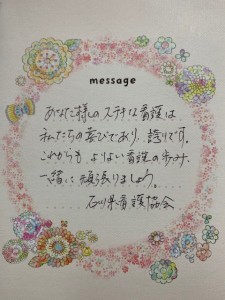 message
あなた様のステキな看護は
私たちの喜びであり、誇りです。
これからも、よりよい看護の歩み、
一緒に頑張りましょう。
石川県看護協会